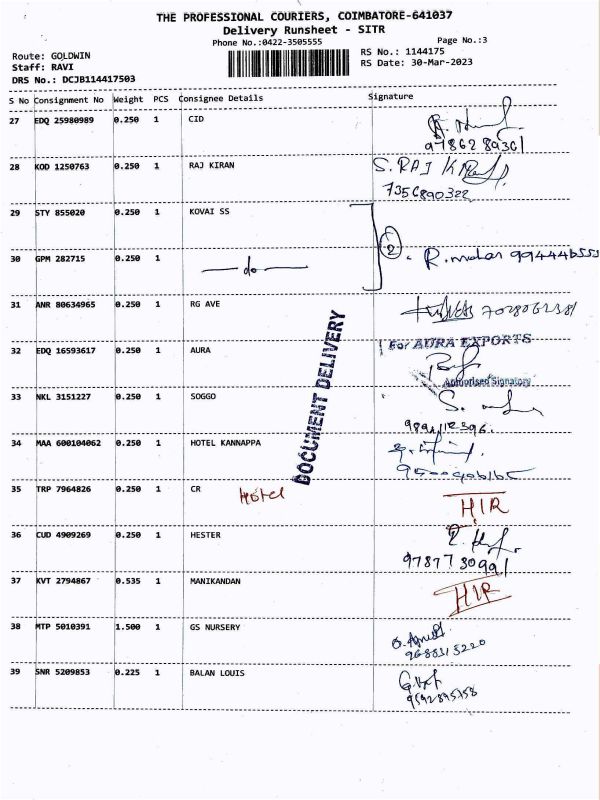 THE PROFESSIONAL COURIERS, COIMBATORE-641037
Delivery Runsheet - SITR
Phone No.:0422-3505555 Page No.:3
Route: GOLDWIN RS No.: 1144175
Staff: RAVI RS Date: 30-Mar-2023
DRS No.: DCJB114417503
S No Consignment No Weight PCS Consignee Details Signature
27 EDQ 25980989 0.250 1 CID
9786289361
28 KOD 1250763 0.250 1 RAJ KIRAN S. RAJ
7356890322
29 STY 855020 0.250 1 KOVAI SS
2
30 GPM 282715 0.250 1 —do—
31 ANR 80634965 0.250 1 RG AVE
32 EDQ 16593617 0.250 1 AURA For AURA EXPORTS
Authorised Signatory
33 NKL 3151227 0.250 1 SOGGO
34 MAA 600104062 0.250 1 HOTEL KANNAPPA
35 TRP 7964826 0.250 1 CR Hotel HIR
36 CUD 4909269 0.250 1 HESTER
9787730991
37 KVT 2794867 0.535 1 MANIKANDAN HIR
38 MTP 5010391 1.500 1 GS NURSERY
39 SNR 5209853 0.225 1 BALAN LOUIS
DOCUMENT DELIVERY